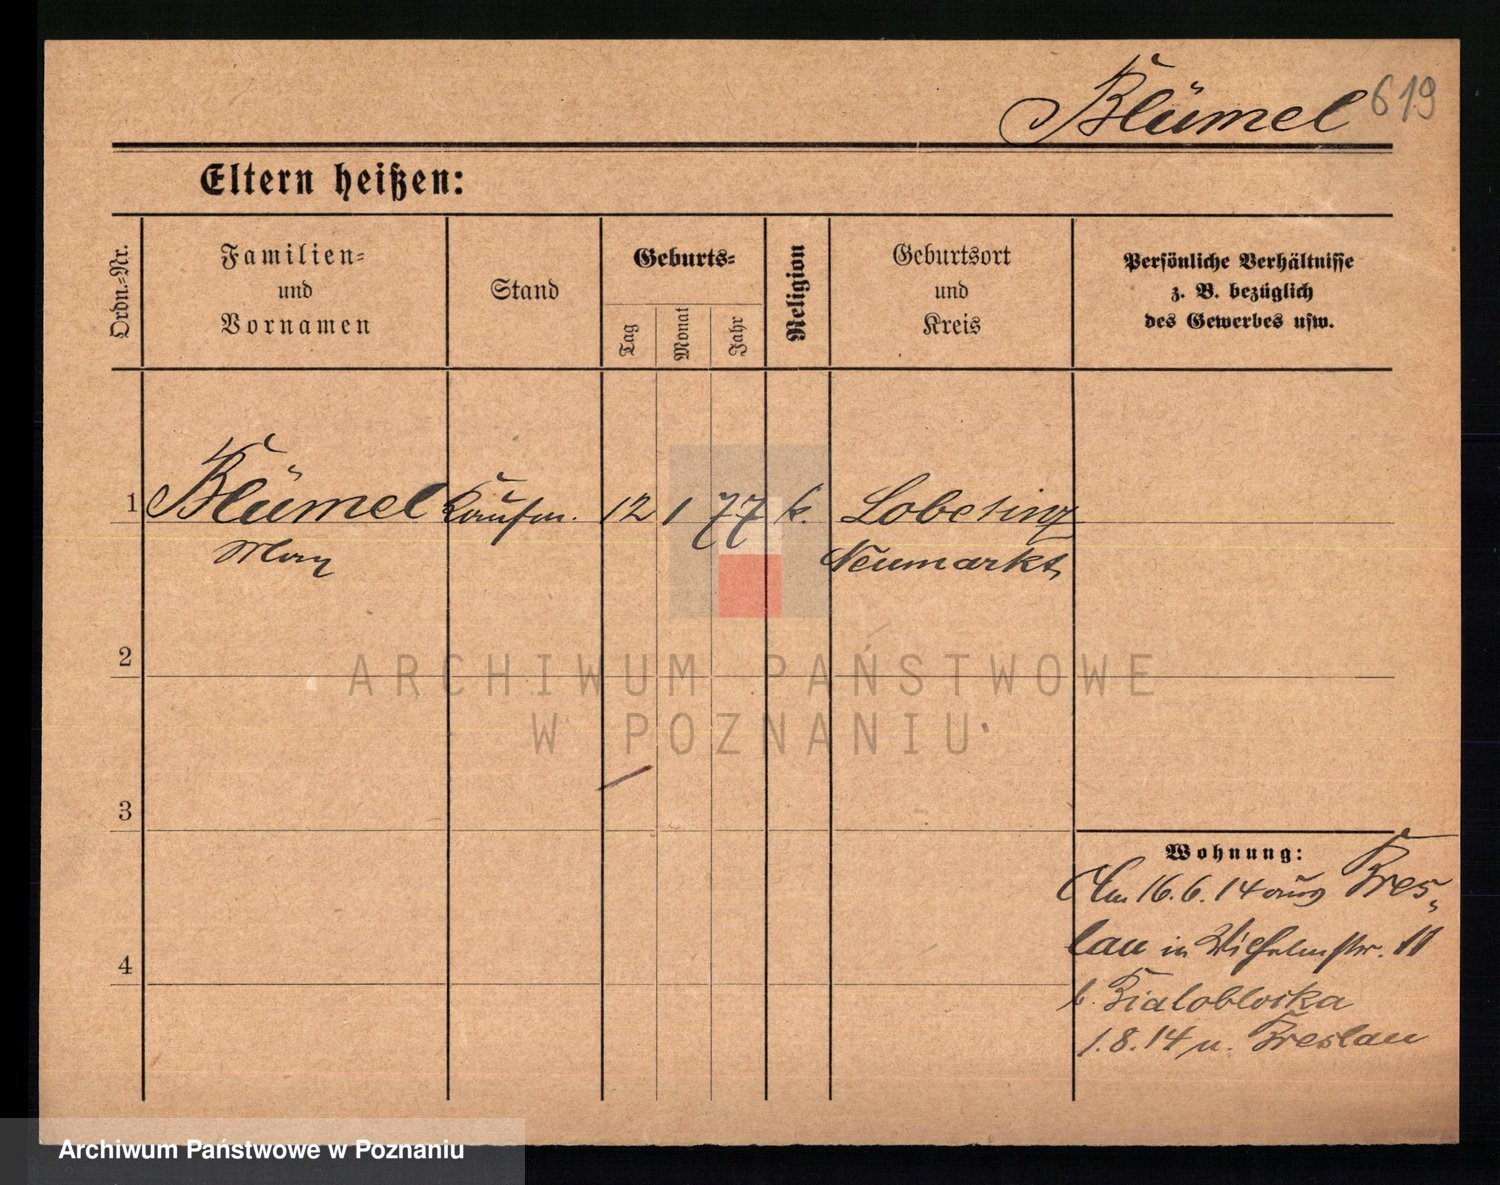 Blümel 619
Eltern heißen:
Ordn.-Nr.
Familien-
und
Vornamen
Stand
Geburts-
Tag
Monat
Jahr
Religion
Geburtsort
und
Kreis
Persönliche Verhältnisse
z. B. bezüglich
des Gewerbes usw.
1 Blümel Kaufm. 12 1 77 k. Lobetinz
Max Neumarkt
2
ARCHIWUM PAŃSTWOWE
W POZNANIU
3
Wohnung:
Am 16.6.14 aus Bres-
lau in Wilhelmstr. 11
b. Bialobloska
4
1.8.14 n. Breslau
Archiwum Państwowe w Poznaniu